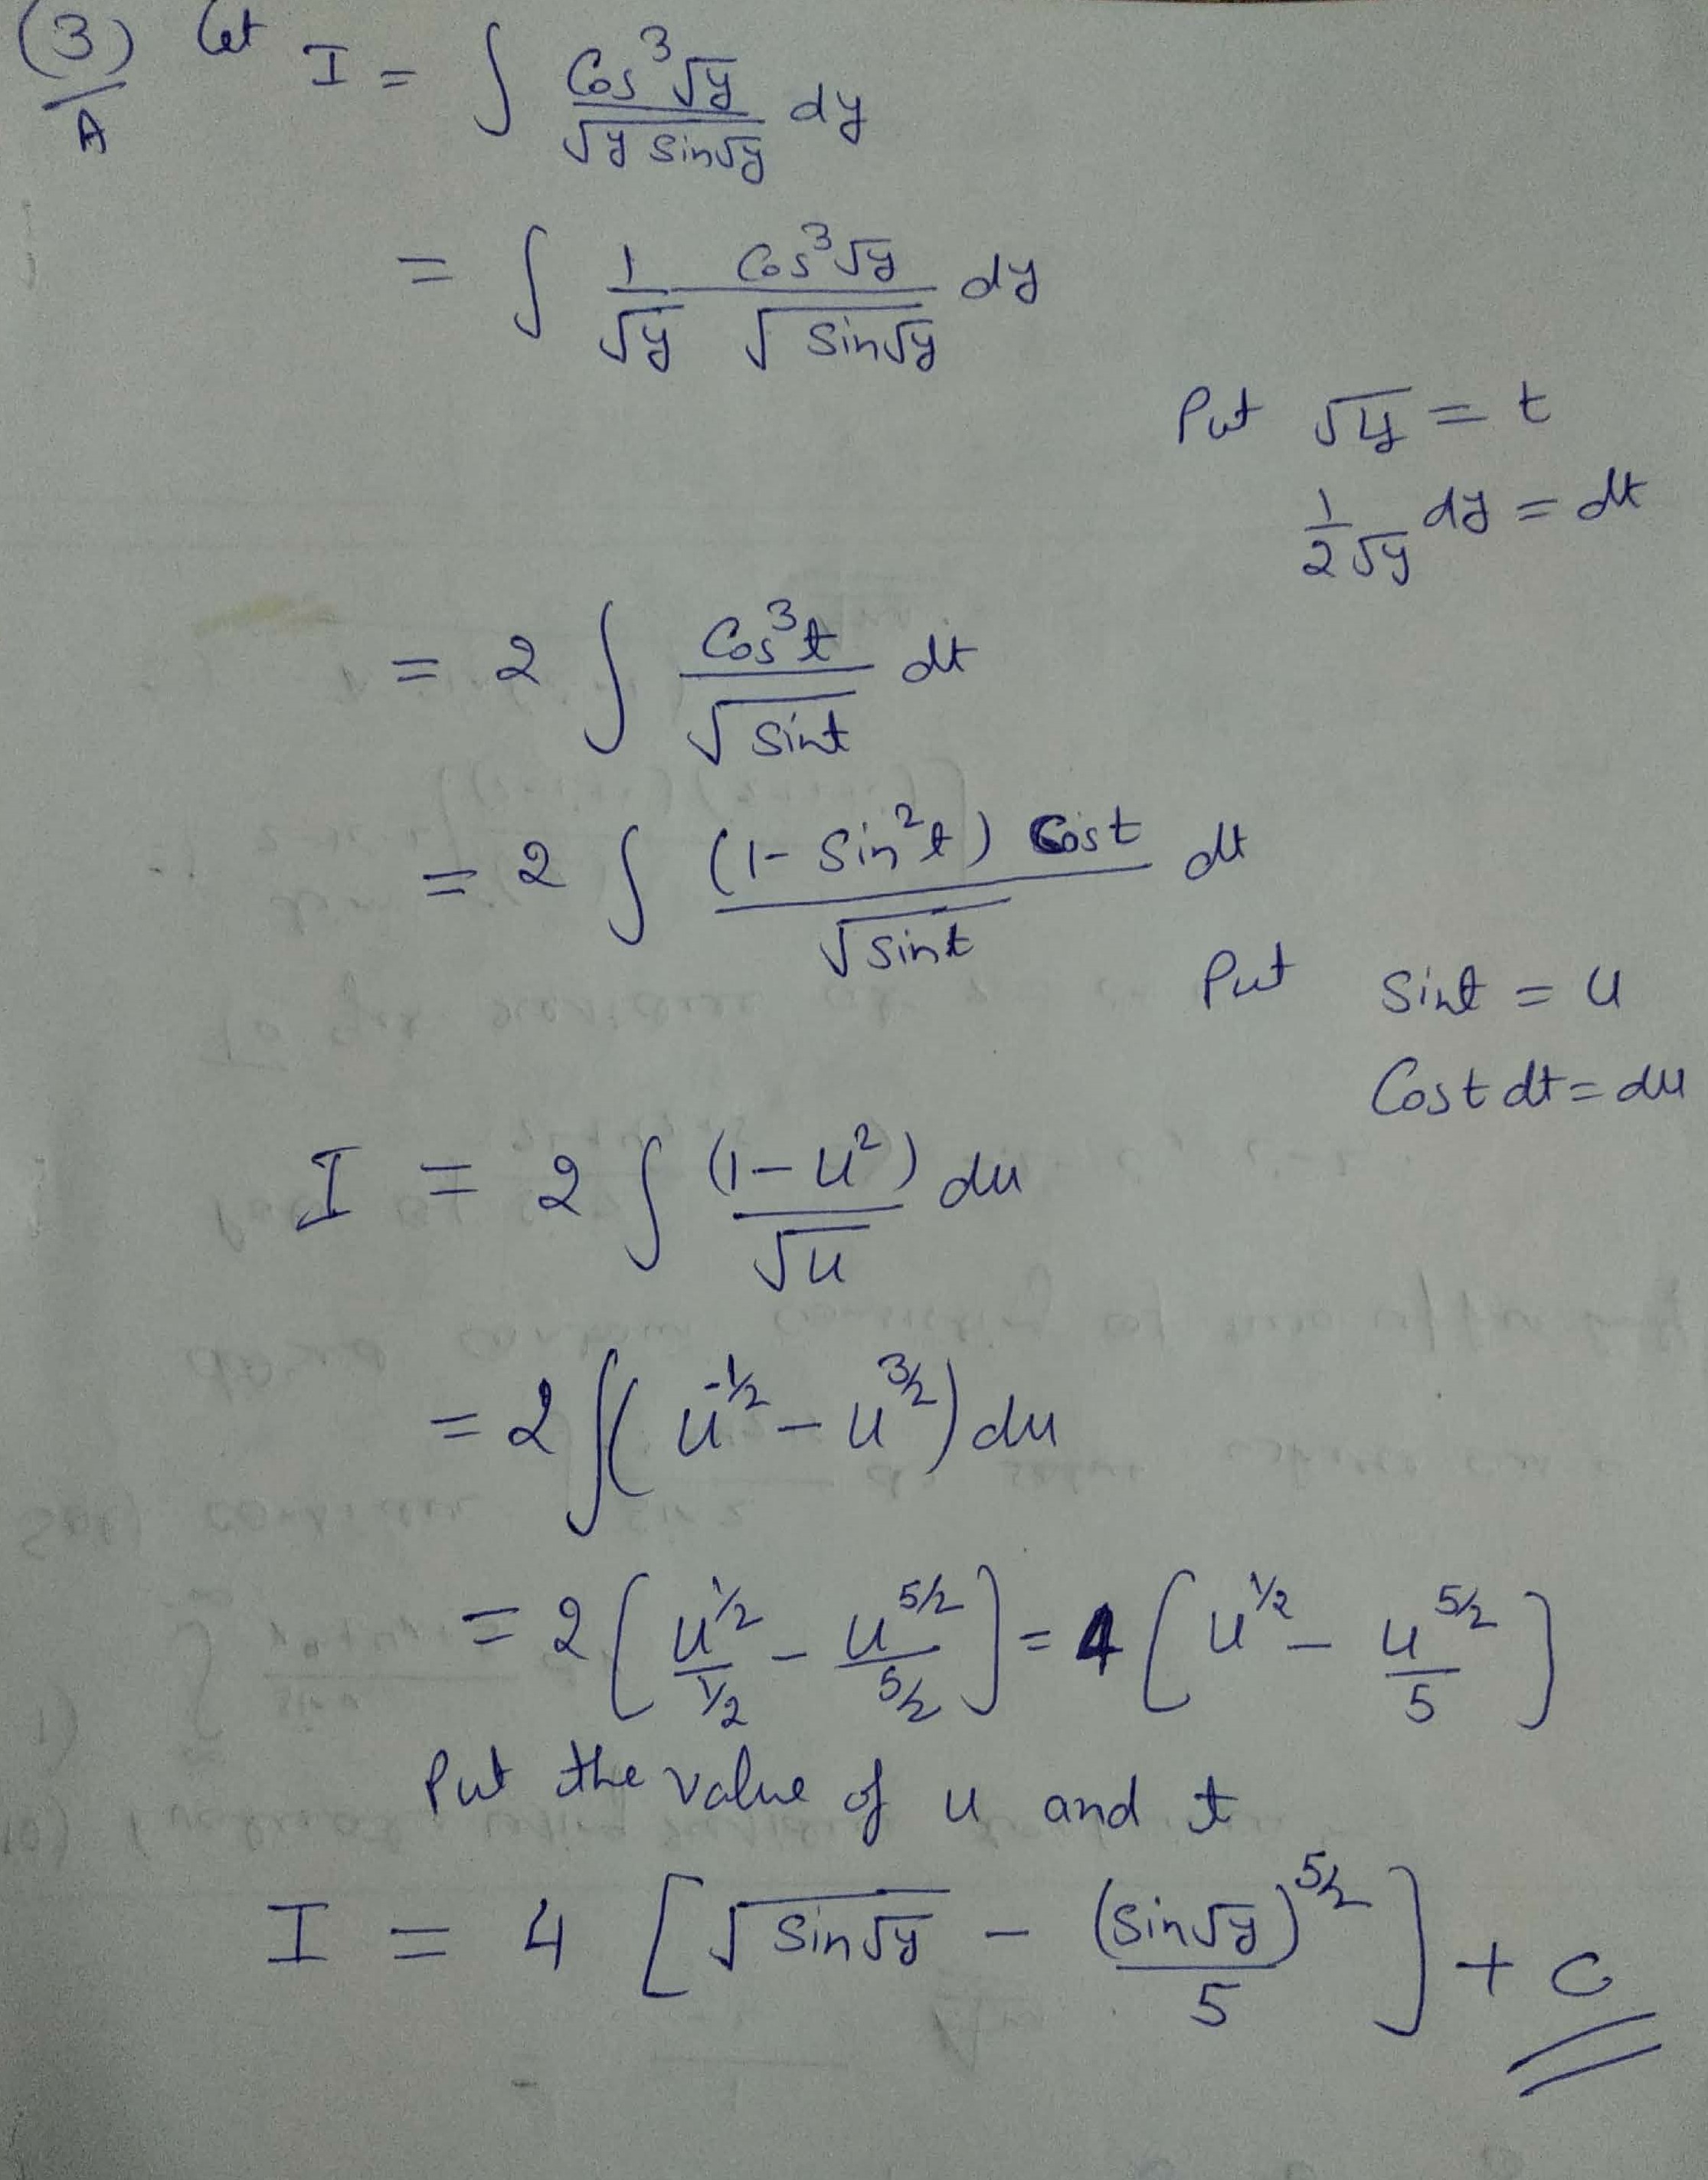 (3) Let I = ∫ Cos³√y / √y sin√y dy
A
= ∫ 1/√y Cos³√y / √(sin√y) dy
Put √y = t
1/2√y dy = dt
= 2 ∫ Cos³t / √(sint) dt
= 2 ∫ (1 - Sin²t) Cost / √(sint) dt
Put Sint = u
Cost dt = du
I = 2 ∫ (1 - u²) / √u du
= 2 ∫ (u^(-1/2) - u^(3/2)) du
= 2 [ u^(1/2) / (1/2) - u^(5/2) / (5/2) ] = 4 [ u^(1/2) - u^(5/2) / 5 ]
Put the value of u and t
I = 4 [ √(Sin√y) - (Sin√y)^(5/2) / 5 ] + C